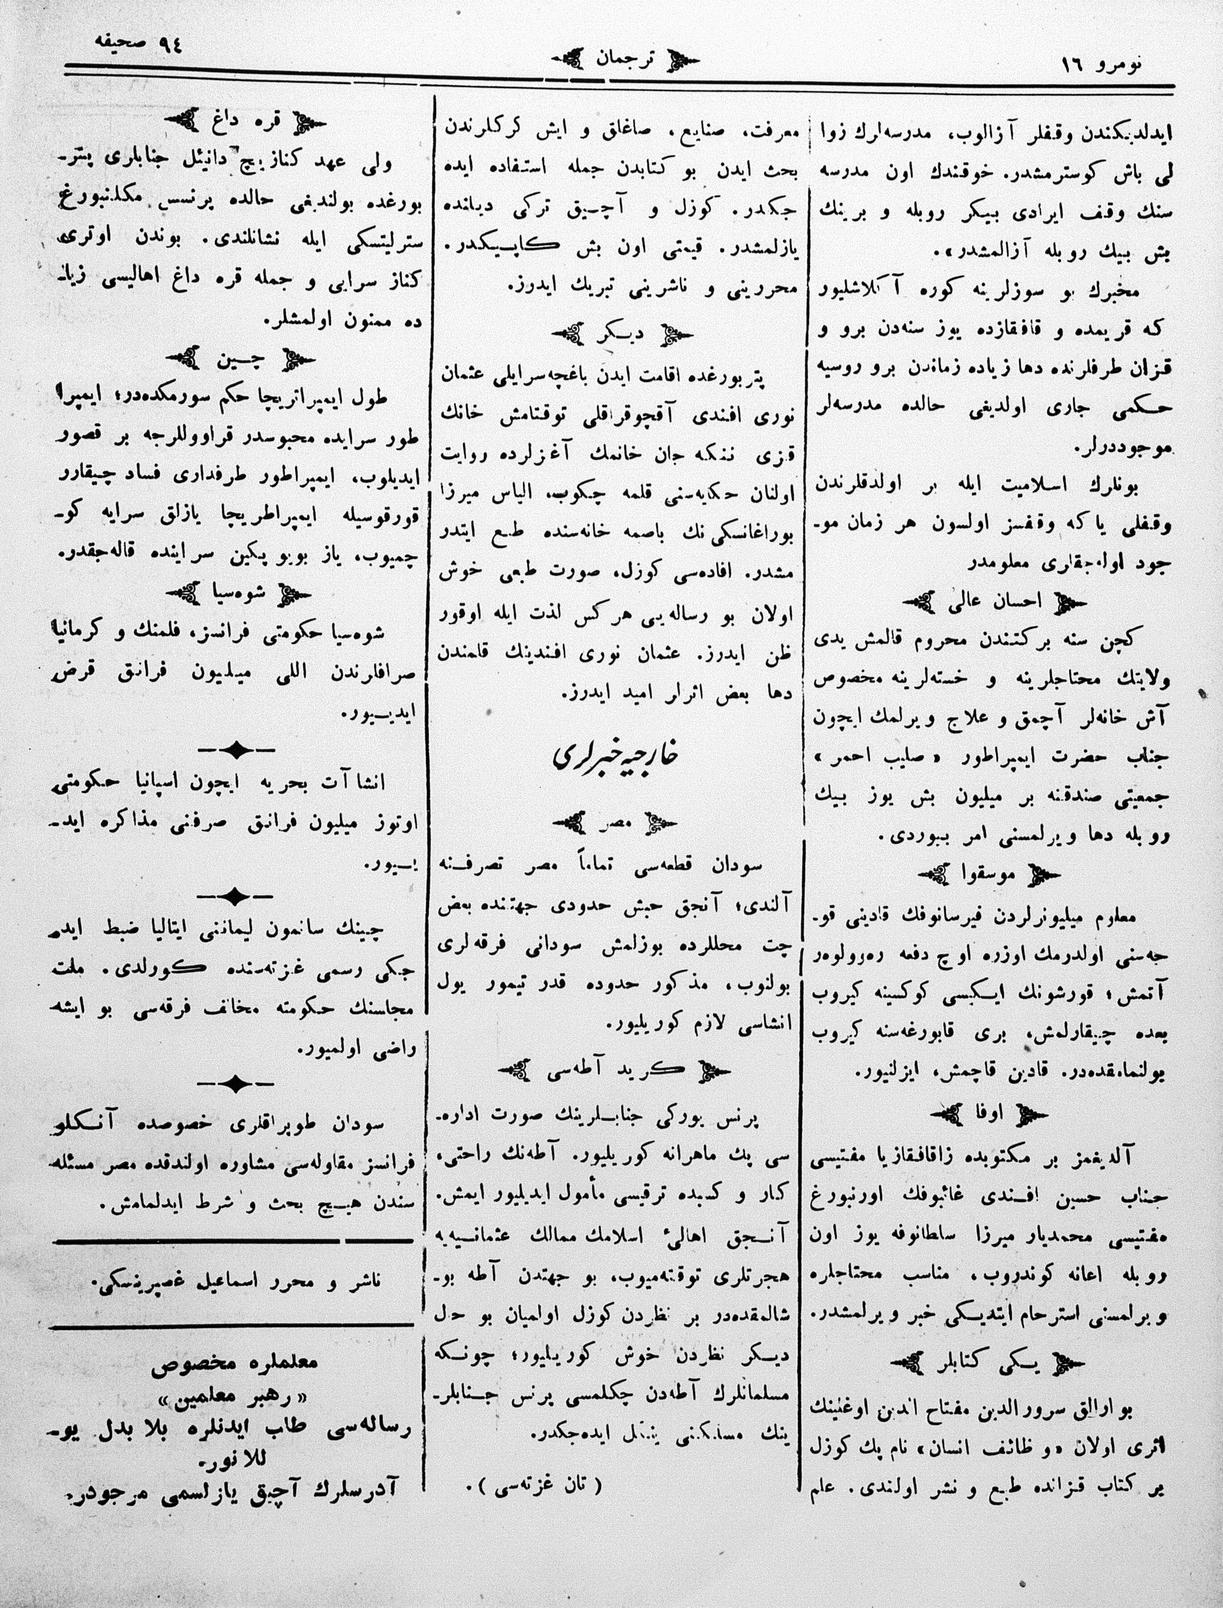 نومرو ١٦
ترجمان
٩٤ صحيفه
ايدلديكندن وقفلر آزالوب، مدرسه‌لرك زوا
لى باش كوسترمشدر. خوقندك اون مدرسه
سنك وقف ايرادى بيكر روبله و برينك
بش بيك روبله آزالمشدر».
مخبرك بو سوزلرينه كوره آكلاشليور
كه قريمده و قافقازده يوز سنه‌دن برو و
قزان طرفلرنده دها زياده زماندن برو روسيه
حكمى جارى اولديغى حالده مدرسه‌لر
موجوددرلر.
بونلرك اسلاميت ايله بر اولدقلرندن
وقفلى ياكه وقفسز اولسون هر زمان مو-
جود اوله‌جقلرى معلومدر
احسان عالى
كچن سنه بركتندن محروم قالمش يدى
ولايتك محتاجلرينه و خسته‌لرينه مخصوص
آش خانه‌لر آچمق و علاج ويرلمك ايچون
جناب حضرت ايمپراطور «صليب احمر»
جمعيتى صندقنه بر ميليون بش يوز بيك
روبله دها ويرلمسنى امر بيوردى.
موسقوا
معلوم ميليونرلردن فيرسانوفك قادينى قو-
جه‌سنى اولدرمك اوزره اوچ دفعه ره‌وولوه‌ر
آتمش؛ قورشونك ايكيسى كوكسينه كيروب
بعده چيقارلمش، برى قابورغه‌سنه كيروب
بولنمامقده‌در. قادين قاچمش، ايزلنيور.
اوفا
آلديغمز بر مكتوبده زاقافقازيا مفتيسى
جناب حسين افندى غائبوفك اورنبورغ
مفتيسى محمديار ميرزا سلطانوفه يوز اون
روبله اعانه كوندروب، مناسب محتاجلره
ويرلمسنى استرحام ايتديكى خبر ويرلمشدر.
يكى كتابلر
بو ارالق سرورالدين مفتاح الدين اوغلينك
اثرى اولان «وظائف انسان» نام پك كوزل
بر كتاب قزانده طبع و نشر اولندى. علم
معرفت، صنايع، صاغلق و ايش كركلرندن
بحث ايدن بو كتابدن جمله استفاده ايده
جكدر. كوزل و آچيق تركى ديلنده
يازلمشدر. قيمتى اون بش كاپيكدر.
محررينى و ناشرينى تبريك ايدرز.
ديكر
پتربورغده اقامت ايدن باغچه‌سرايلى عثمان
نورى افندى آقچوقراقلى توقتامش خانك
قزى ننكه جان خانمك آغزلرده روايت
اولنان حكايه‌سنى قلمه چكوب، الياس ميرزا
بوراغانسكى نك باصمه خانه‌سنده طبع ايتدر
مشدر. افاده‌سى كوزل، صورت طبعى خوش
اولان بو رساله‌يى هركس لذت ايله اوقور
ظن ايدرز. عثمان نورى افندينك قلمندن
دها بعض اثرلر اميد ايدرز.
خارجيه خبرلرى
مصر
سودان قطعه‌سى تماماً مصر تصرفنه
آلندى؛ آنجق حبش حدودى جهتنده بعض
چت محللرده بوزلمش سودانى فرقه‌لرى
بولنوب، مذكور حدوده قدر تيمور يول
انشاسى لازم كوريليور.
كريد آطه‌سى
پرنس يوركى جنابلرينك صورت اداره-
سى پك ماهرانه كوريليور. آطه‌نك راحتى،
كار و كسبده ترقيسى مأمول ايديليور ايمش.
آنجق اهالئ اسلامك ممالك عثمانيه‌يه
هجرتلرى توقته‌ميوب، بو جهتدن آطه بو-
شالمقده‌در بر نظردن كوزل اولميان بو حال
ديكر نظردن خوش كوريليور؛ چونكه
مسلمانلرك آطه‌دن چكلمسى پرنس جنابلر-
ينك مسلكنى يتكل ايده‌جكدر.
(تان غزته‌سى).
قره داغ
ولى عهد كنازيچ دانيئل جنابلرى پتر-
بورغده بولنديغى حالده پرنسس مكلنبورغ
سترليتسكى ايله نشانلندى. بوندن اوترى
كناز سرايى و جمله قره داغ اهاليسى زيا-
ده ممنون اولمشلر.
چين
طول ايمپراتريچا حكم سورمكده‌در؛ ايمپرا
طور سرايده محبوسدر قراووللرجه بر قصور
ايديلوب، ايمپراطور طرفدارى فساد چيقارر
قورقوسيله ايمپراطريچا يازلق سرايه كو-
چميوب، ياز بويو پكين سراينده قاله‌جقدر.
شوه‌سيا
شوه‌سيا حكومتى فرانسز، فلمنك و كرمانيا
صرافلرندن اللى ميليون فرانق قرض
ايديور.
انشاآت بحريه ايچون اسپانيا حكومتى
اوتوز ميليون فرانق صرفنى مذاكره ايد-
ييور.
چينك سانمون ليماننى ايتاليا ضبط ايده
جكى رسمى غزته‌سنده كورلدى. ملت
مجلسنك حكومته مخالف فرقه‌سى بو ايشه
راضى اولميور.
سودان طوپراقلرى خصوصده آنكلو
فرانسز مقاوله‌سى مشاوره اولندقده مصر مسئله
سندن هيچ بحث و شرط ايدلمامش.
ناشر و محرر اسماعيل غصپرينسكى.
معلملره مخصوص
«رهبر معلمين»
رساله‌سى طلب ايدنلره بلا بدل يو-
للانور.
آدرسلرك آچيق يازلسمى مرجودر.